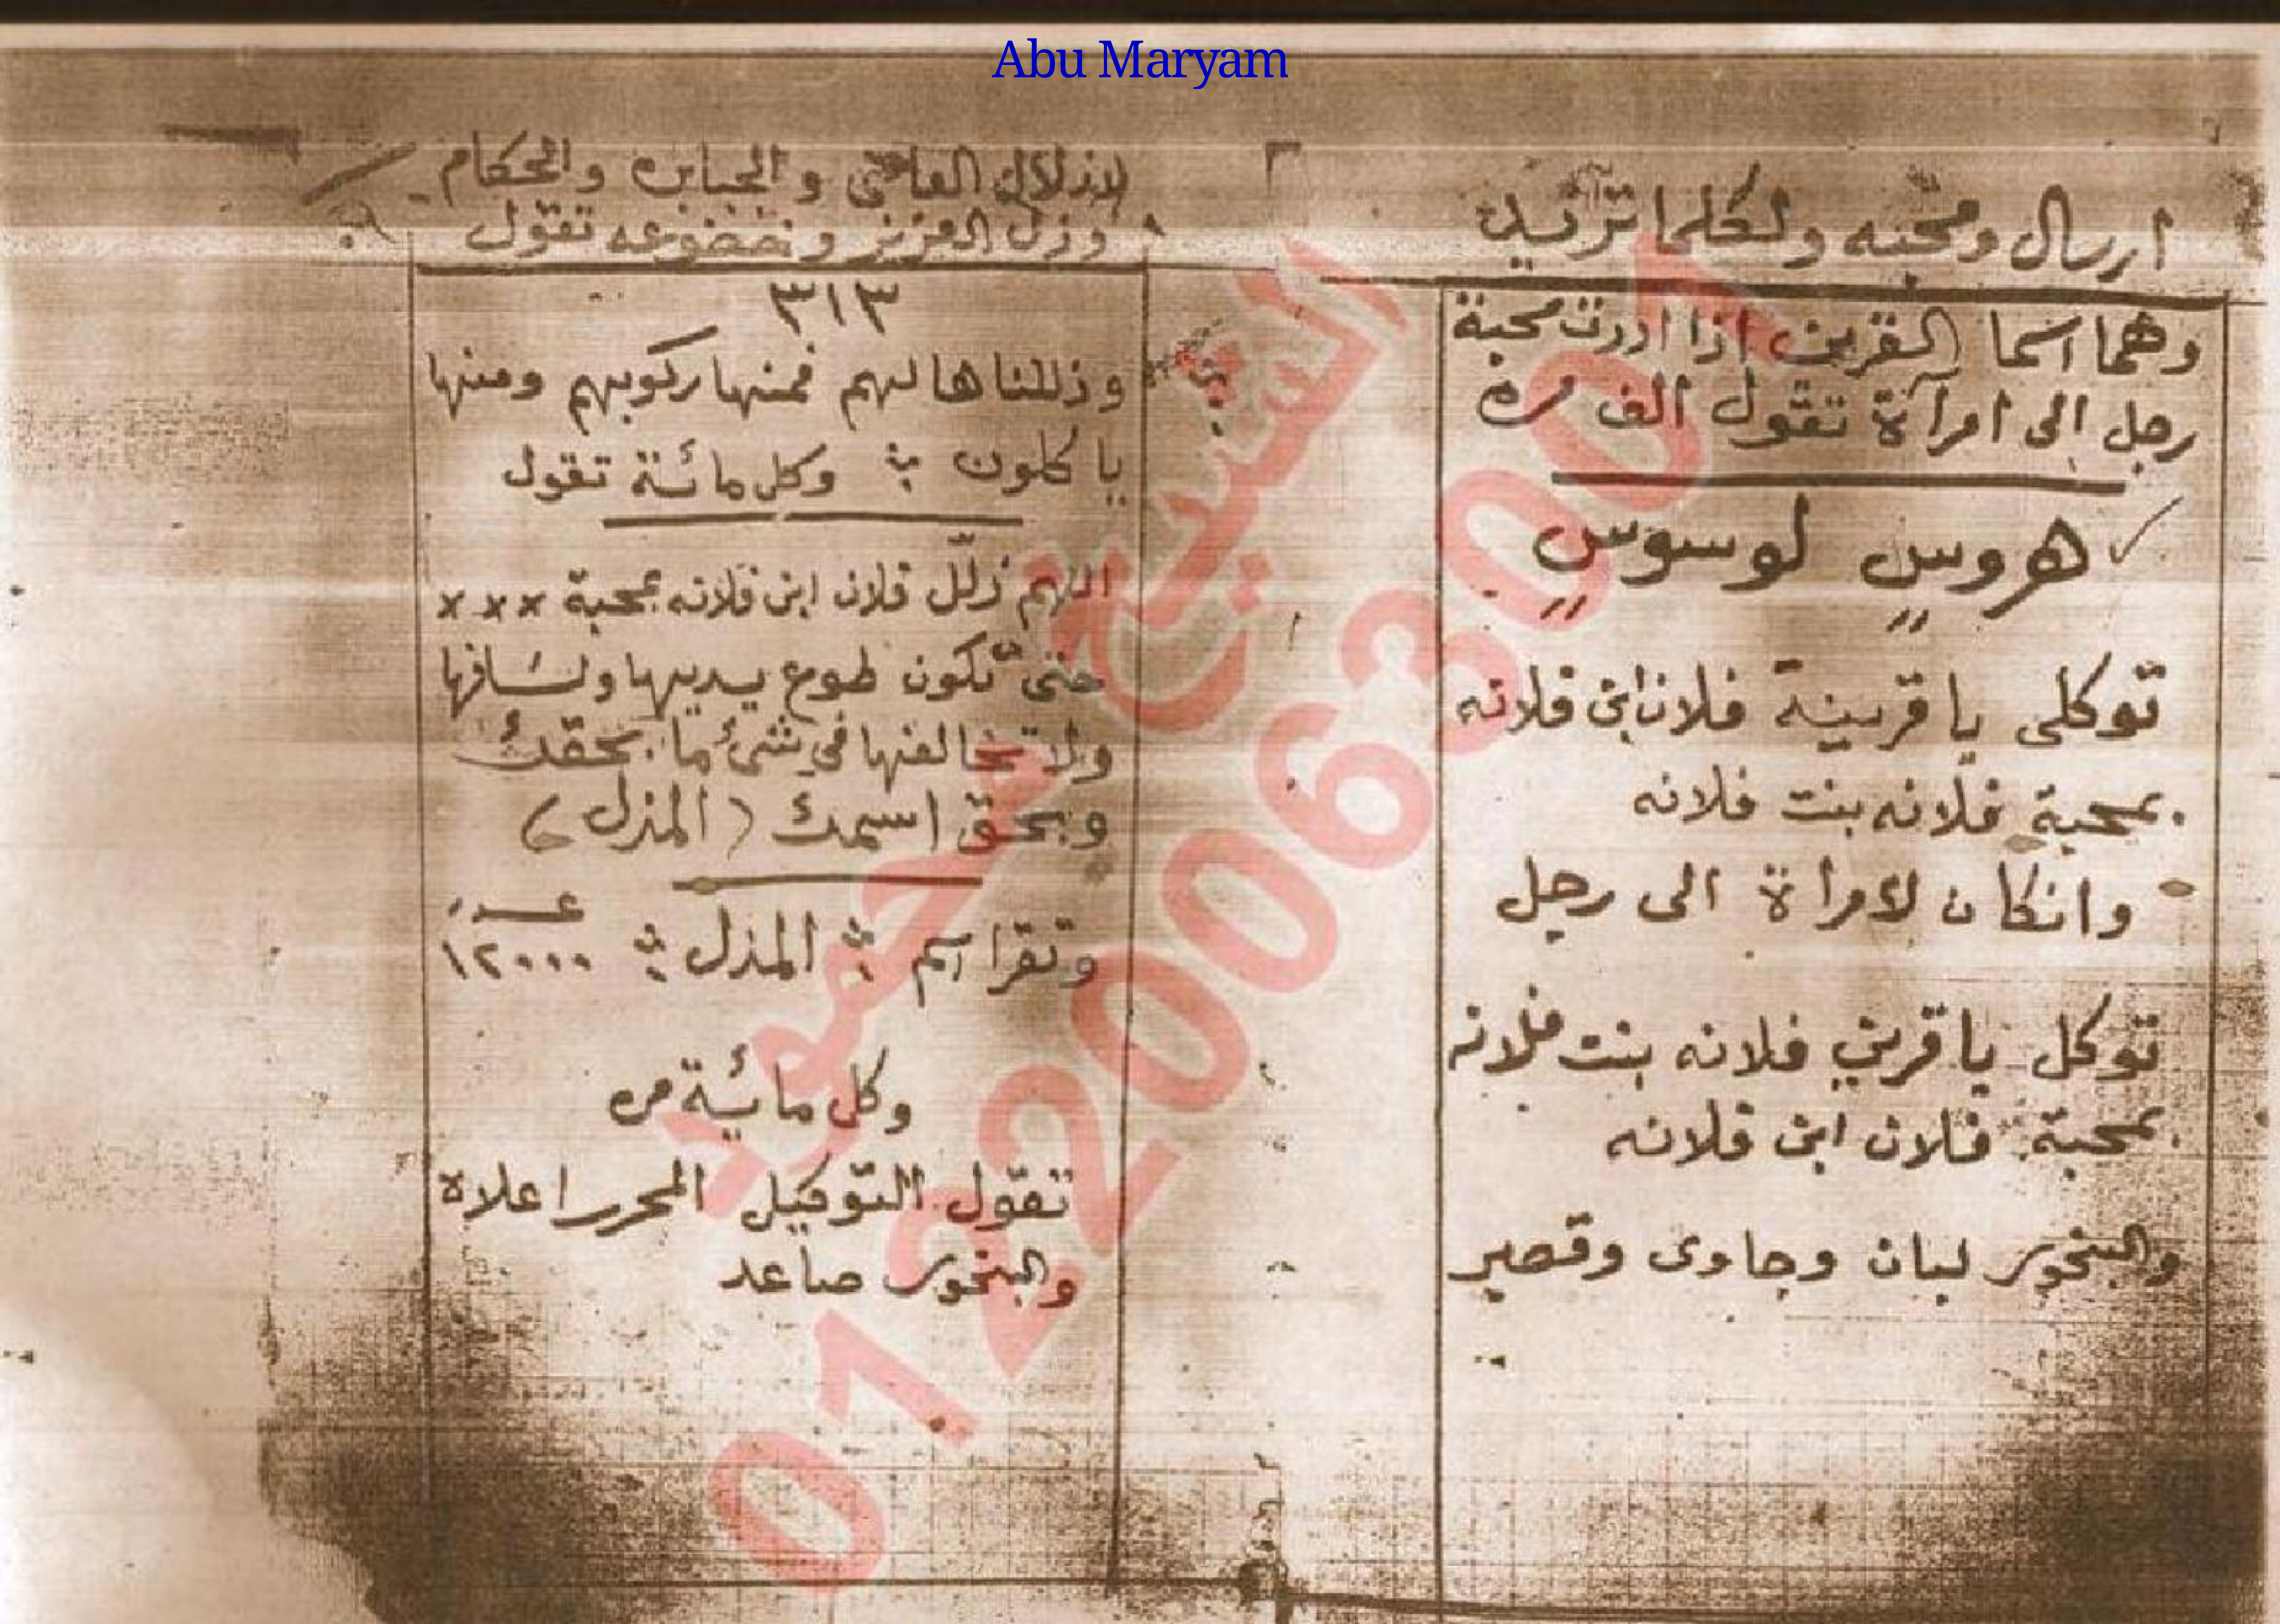 Abu Maryam
ارسال ومحبه ولكلما تريد
وهما اسما القرين اذا اردت محبة
رجل الى امرآة تقول الف مره
هروسٍ لوسوسٍ
توكلى يا قرينة فلان ابن فلانه
بمحبة فلانه بنت فلانه
وانكان لامراة الى رجل
توكل يا قرين فلانه بنت فلانه
بمحبة فلان ابن فلانه
والبخور لبان وجاوى وقصير
لاذلال العاصى والجبابره والحكام
وذل العزيز وتخضوعه تقول
٣١٣
وذللناها لهم فمنها ركوبهم ومنها
ياكلون وكل مائة تقول
اللهم ذلّل فلان ابن فلانه بمحبة ×××
حتى تكون طوع يديها ولسافرها
ولا تخالفها فى شئ ما بحقك
وبحق اسمك (المذل)
وتقرا اسم المذل عدد ١٢٠٠٠
وكل مائة مره
تقول التوكيل المحرر اعلاه
والبخور صاعد
الشيخ محمود
01220063001